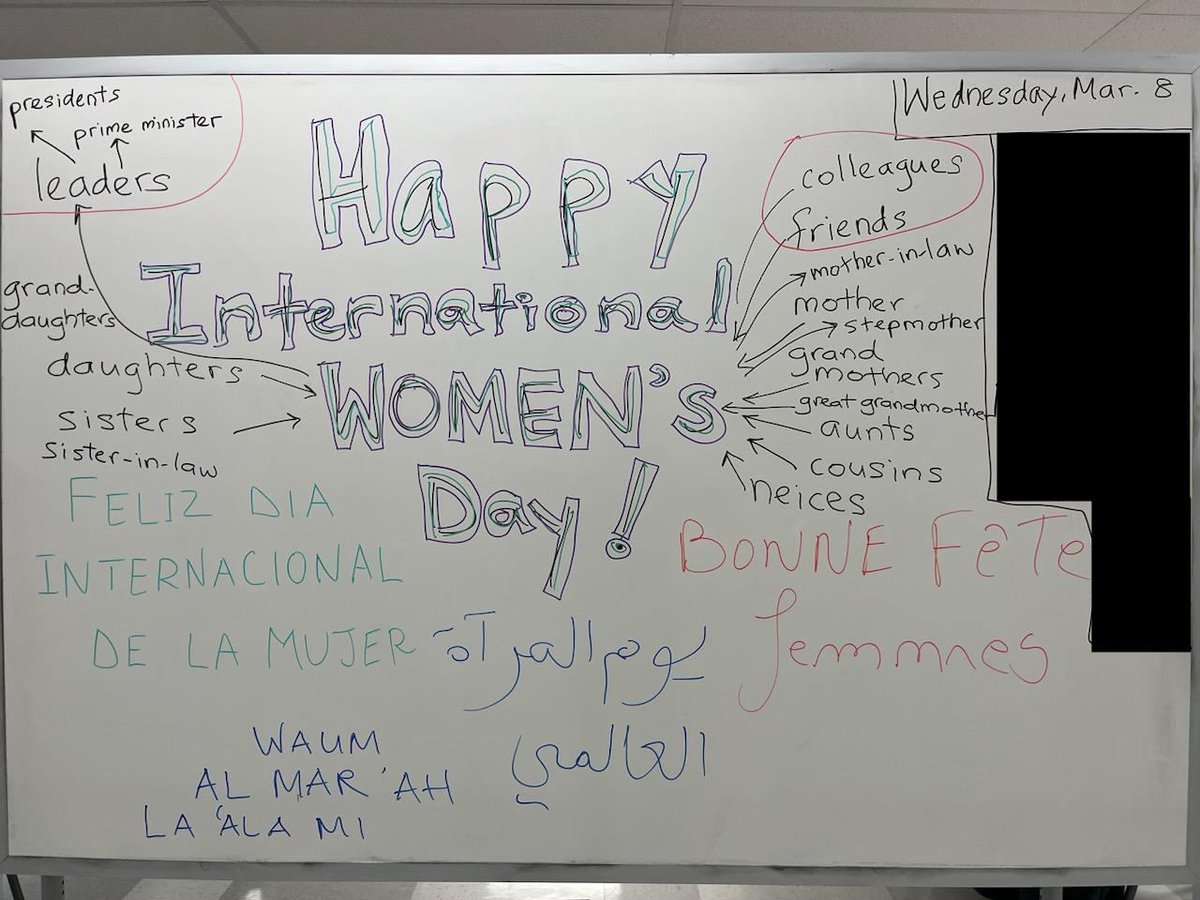 presidents
prime minister
leaders
Wednesday, Mar. 8
Happy
International
WOMEN's
Day!
colleagues
friends
mother-in-law
mother
stepmother
grand
mothers
great grandmother
aunts
cousins
neices
grand-
daughters
daughters
sisters
sister-in-law
FELIZ DIA
INTERNACIONAL
DE LA MUJER
BONNE FêTe
femmes
يوم المرآة
العالمي
WAUM
AL MAR'AH
LA 'ALA MI